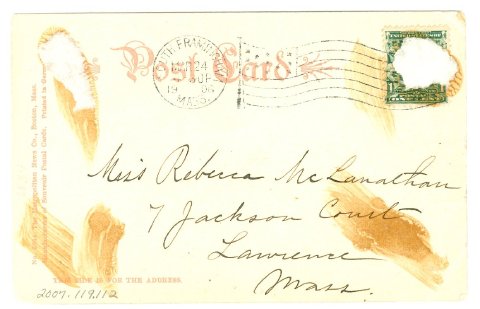 Post Card
TH FRAMI
24
19 06
MASS.
1
Miss Rebecca McLanathan
7 Jackson Court
Lawrence
Mass.
THIS SIDE IS FOR THE ADDRESS.
2007.119.112
The Metropolitan News Co., Boston, Mass.
of Souvenir Postal Cards. Printed in